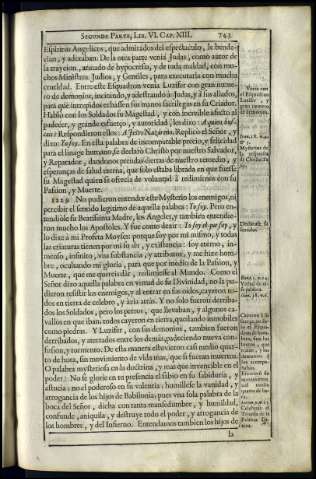 SEGUNDA PARTE, LIB. VI. CAP. XIII. 743
Espiritus Angelicos, que admirados del espectaculo, le bende-
cian, y adoraban. De la otra parte venia Judas, como autor de
la traycion, armado de hypocresia, y de toda maldad, con mu-
chos Ministros Judios, y Gentiles, para executarla con mucha
crueldad. Entre este Esquadron venia Luzifer con gran nume-
ro de demonios, incitando, y adestrando à Judas, y à sus aliados,
para que intrepidos echassen sus manos sacrilegas en su Criador.
Habló con los Soldados su Magestad, y con increible afecto al
padecer, y grande esfuerço, y autoridad les dixo: A quien bus-
cais? Respondieron ellos: A Jesus Nazareno. Replicó el Señor, y
dixo: Yo soy. En esta palabra de incomparable precio, y felicidad
para el linage humano se declaró Christo por nuestro Salvador,
y Reparador, dandonos prendas ciertas de nuestro remedio, y
esperanças de salud eterna, que solo estaba librada en que fuesse
su Magestad quien se ofrecia de voluntad à redimirnos con su
Passion, y Muerte.
1229 No pudieron entender este Mysterio los enemigos, ni
percibir el sentido legitimo de aquella palabra: Yo soy. Pero en-
tendióle su Beatissima Madre, los Angeles, y tambien entendie-
ron mucho los Apostoles. Y fue como dezir: Yo soy el que soy, y
lo dixe à mi Profeta Moyses: porque soy por mi mismo, y todas
las criaturas tienen por mi su ser, y existencia: soy eterno, in-
menso, infinito, vna substancia, y atributos, y me hize hom-
bre, ocultando mi gloria, para que por medio de la Passion, y
Muerte, que me quereis dar, redimiesse al Mundo. Como el
Señor dixo aquella palabra en virtud de su Divinidad, no la pu-
dieron resistir los enemigos, y al entrar en sus oidos, cayeron to-
dos en tierra de celebro, y àzia atràs. Y no solo fueron derriba-
dos los Soldados, pero los perros, que llevaban, y algunos ca-
vallos en que iban, todos cayeron en tierra, quedando inmobiles
como piedras. Y Luzifer, con sus demonios, tambien fueron
derribados, y aterrados entre los demás, padeciendo nueva con-
fusion, y tormento. De esta manera estuvieron casi medio quar-
to de hora, sin movimiento de vida mas, que si fueran muertos.
O palabra mysteriosa en la doctrina, y mas que invencible en el
poder! No se glorie en tu presencia el sabio en su sabiduria, y
astucia; no el poderoso en su valentia: humillese la vanidad, y
arrogancia de los hijos de Babilonia, pues vna sola palabra de la
boca del Señor, dicha con tanta mansedumbre, y humildad,
confunde, aniquila, y destruye todo el poder, y arrogancia de
los hombres, y del Infierno. Entendamos tambien los hijos de
la